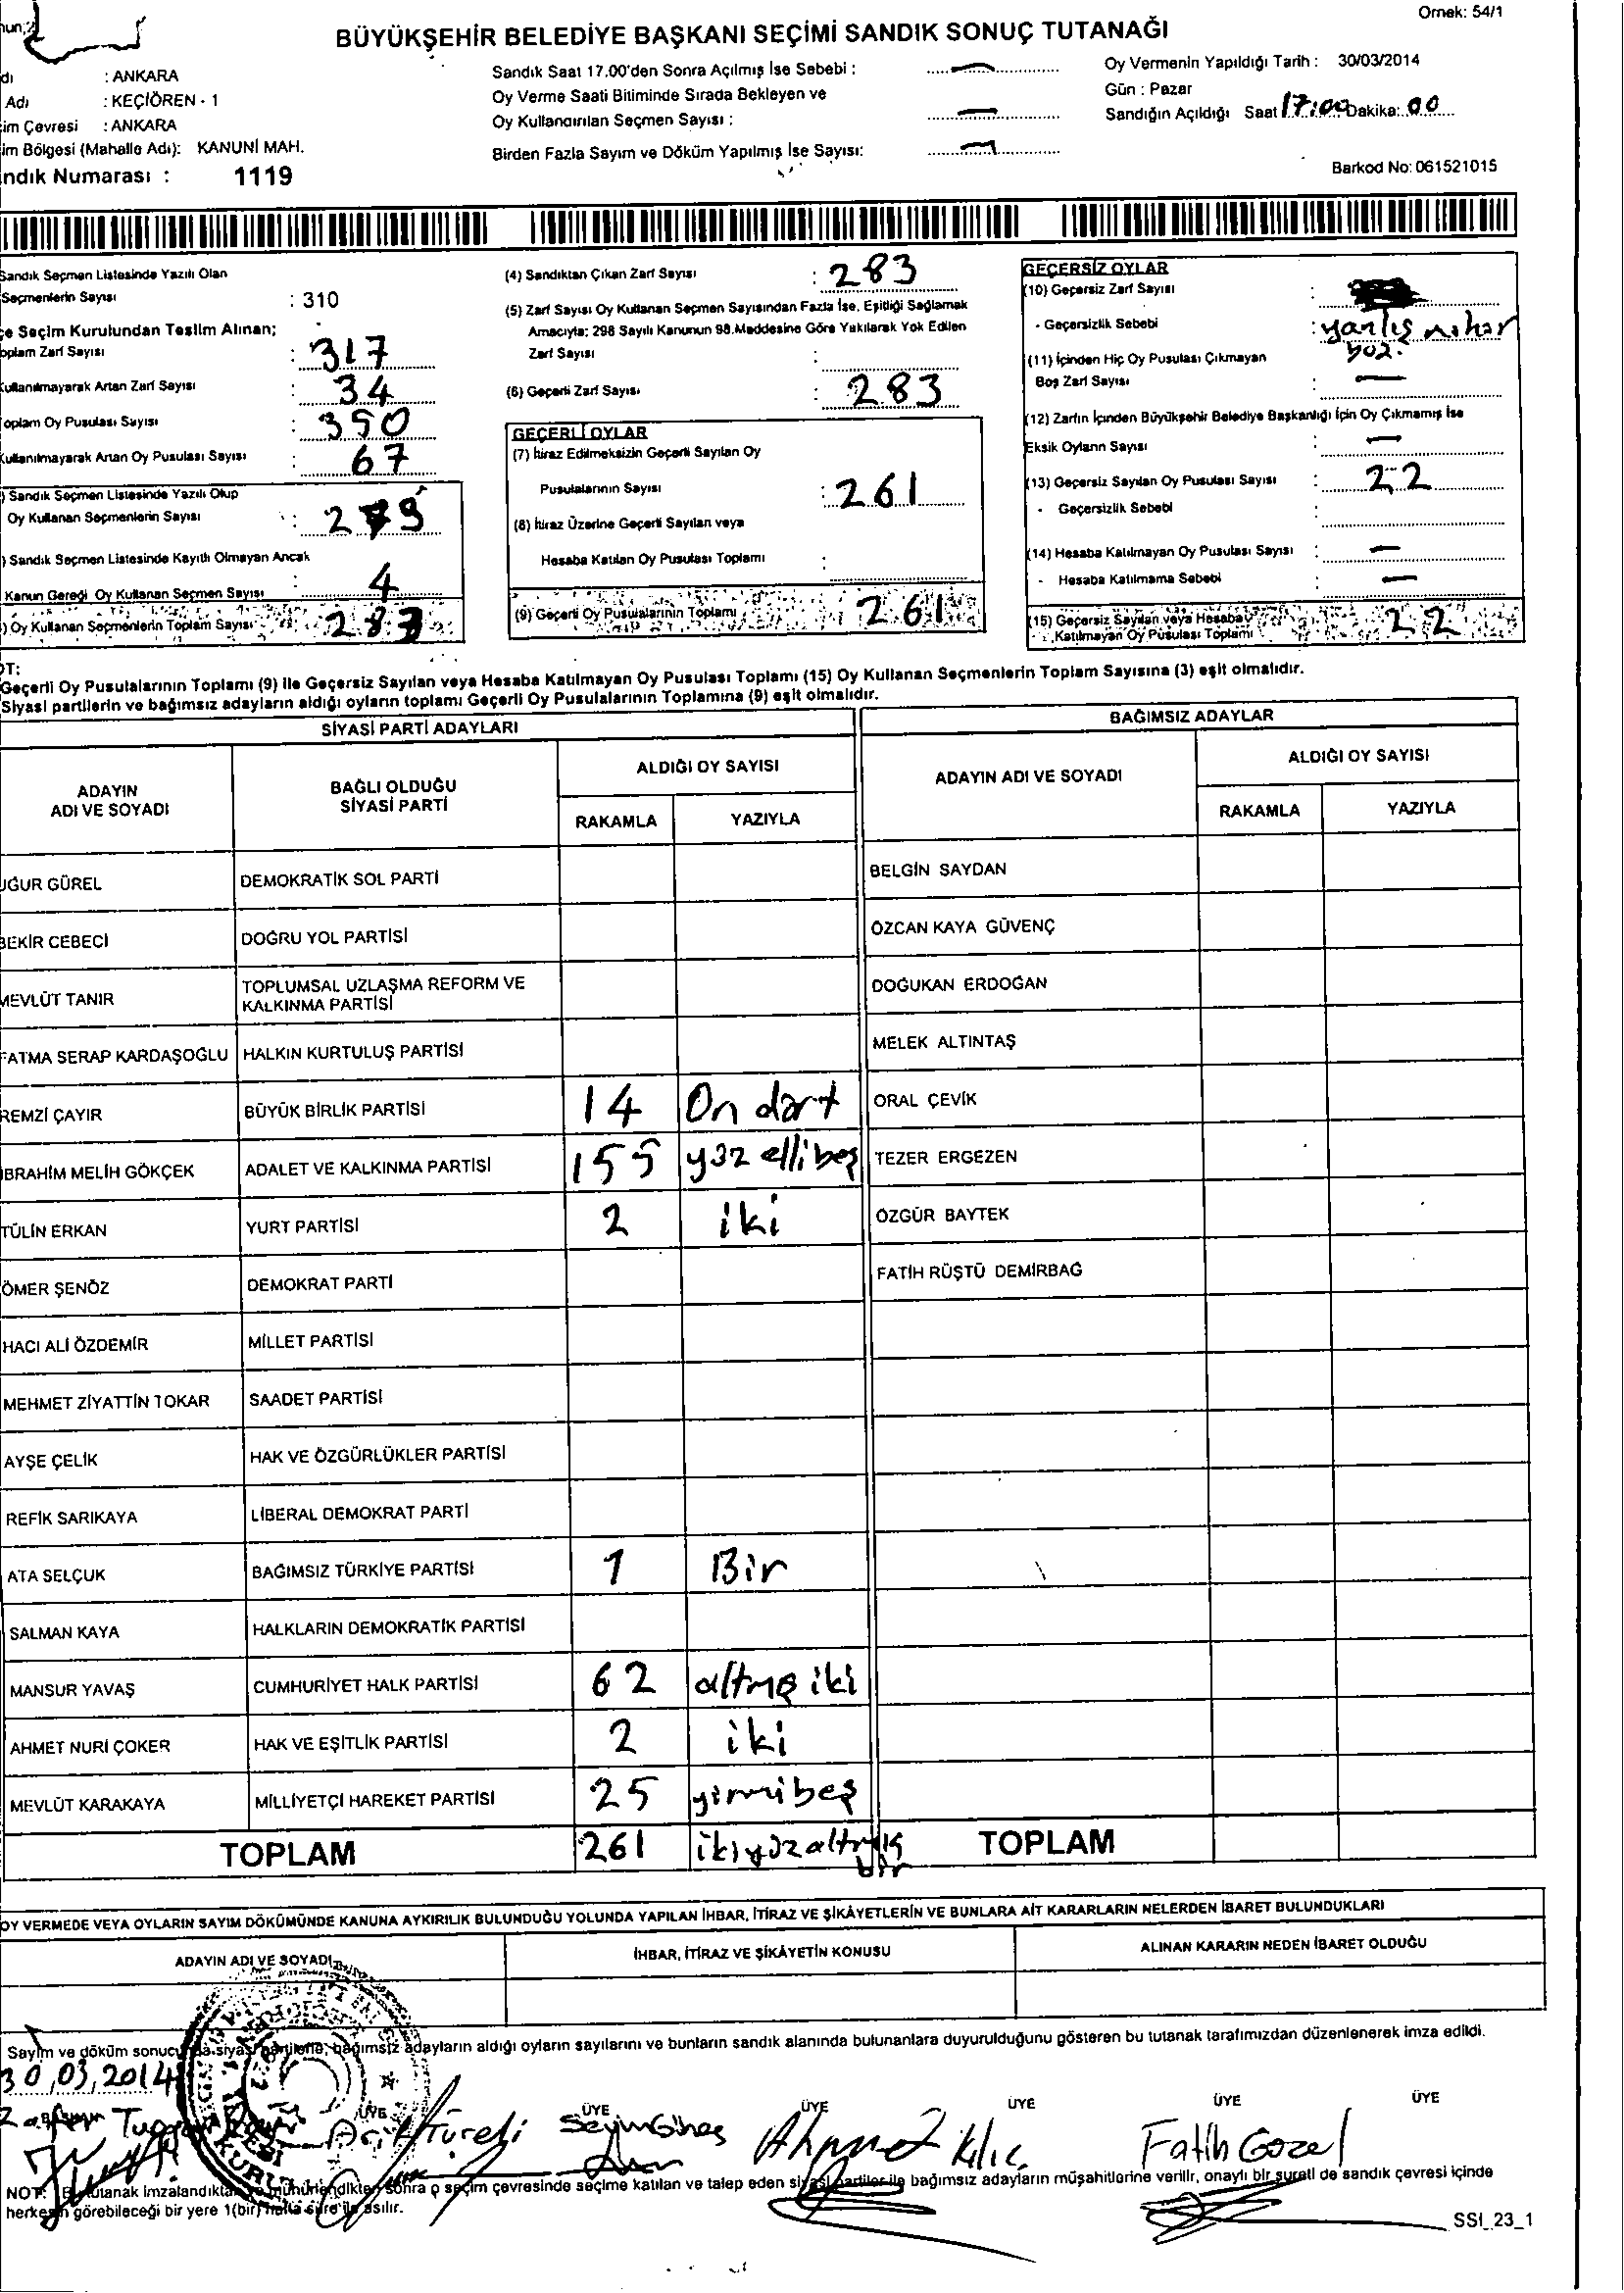 Örnek: 54/1
BÜYÜKŞEHİR BELEDİYE BAŞKANI SEÇİMİ SANDIK SONUÇ TUTANAĞI
dı : ANKARA
Adı : KEÇİÖREN - 1
im Çevresi : ANKARA
im Bölgesi (Mahalle Adı): KANUNİ MAH.
ndık Numarası : 1119
Sandık Saat 17.00'den Sonra Açılmış İse Sebebi : —
Oy Verme Saati Bitiminde Sırada Bekleyen ve
Oy Kullandırılan Seçmen Sayısı : —
Birden Fazla Sayım ve Döküm Yapılmış İse Sayısı: —
Oy Vermenin Yapıldığı Tarih : 30/03/2014
Gün : Pazar
Sandığın Açıldığı Saat 17:00 Dakika: 00
Barkod No: 061521015
Sandık Seçmen Listesinde Yazılı Olan
Seçmenlerin Sayısı : 310
çe Seçim Kurulundan Teslim Alınan;
oplam Zarf Sayısı : 317
Kullanılmayarak Artan Zarf Sayısı : 34
Toplam Oy Pusulası Sayısı : 350
Kullanılmayarak Artan Oy Pusulası Sayısı : 67
) Sandık Seçmen Listesinde Yazılı Olup
Oy Kullanan Seçmenlerin Sayısı : 279
) Sandık Seçmen Listesinde Kayıtlı Olmayan Ancak
Kanun Gereği Oy Kullanan Seçmen Sayısı : 4
) Oy Kullanan Seçmenlerin Toplam Sayısı : 283
(4) Sandıktan Çıkan Zarf Sayısı : 283
(5) Zarf Sayısı Oy Kullanan Seçmen Sayısından Fazla İse, Eşitliği Sağlamak
Amacıyla; 298 Sayılı Kanunun 98.Maddesine Göre Yakılarak Yok Edilen
Zarf Sayısı :
(6) Geçerli Zarf Sayısı : 283
GEÇERLİ OYLAR
(7) İtiraz Edilmeksizin Geçerli Sayılan Oy
Pusulalarının Sayısı : 261
(8) İtiraz Üzerine Geçerli Sayılan veya
Hesaba Katılan Oy Pusulası Toplamı :
(9) Geçerli Oy Pusulalarının Toplamı : 261
GEÇERSİZ OYLAR
(10) Geçersiz Zarf Sayısı :
- Geçersizlik Sebebi : yanlış mühür
boz.
(11) İçinden Hiç Oy Pusulası Çıkmayan
Boş Zarf Sayısı : —
(12) Zarfın İçinden Büyükşehir Belediye Başkanlığı İçin Oy Çıkmamış İse
Eksik Oyların Sayısı : —
(13) Geçersiz Sayılan Oy Pusulası Sayısı : 22
- Geçersizlik Sebebi :
(14) Hesaba Katılmayan Oy Pusulası Sayısı : —
- Hesaba Katılmama Sebebi : —
(15) Geçersiz Sayılan veya Hesaba
Katılmayan Oy Pusulası Toplamı : 22
OT:
Geçerli Oy Pusulalarının Toplamı (9) ile Geçersiz Sayılan veya Hesaba Katılmayan Oy Pusulası Toplamı (15) Oy Kullanan Seçmenlerin Toplam Sayısına (3) eşit olmalıdır.
Siyasi partilerin ve bağımsız adayların aldığı oyların toplamı Geçerli Oy Pusulalarının Toplamına (9) eşit olmalıdır.
SİYASİ PARTİ ADAYLARI
ADAYIN ADI VE SOYADI BAĞLI OLDUĞU SİYASİ PARTİ ALDIĞI OY SAYISI
RAKAMLA YAZIYLA
UĞUR GÜREL DEMOKRATİK SOL PARTİ
BEKİR CEBECİ DOĞRU YOL PARTİSİ
MEVLÜT TANIR TOPLUMSAL UZLAŞMA REFORM VE KALKINMA PARTİSİ
FATMA SERAP KARDAŞOĞLU HALKIN KURTULUŞ PARTİSİ
REMZİ ÇAYIR BÜYÜK BİRLİK PARTİSİ 14 On dört
İBRAHİM MELİH GÖKÇEK ADALET VE KALKINMA PARTİSİ 155 yüz ellibeş
TÜLİN ERKAN YURT PARTİSİ 2 iki
ÖMER ŞENÖZ DEMOKRAT PARTİ
HACI ALİ ÖZDEMİR MİLLET PARTİSİ
MEHMET ZİYATTİN TOKAR SAADET PARTİSİ
AYŞE ÇELİK HAK VE ÖZGÜRLÜKLER PARTİSİ
REFİK SARIKAYA LİBERAL DEMOKRAT PARTİ
ATA SELÇUK BAĞIMSIZ TÜRKİYE PARTİSİ 1 Bir
SALMAN KAYA HALKLARIN DEMOKRATİK PARTİSİ
MANSUR YAVAŞ CUMHURİYET HALK PARTİSİ 62 altmış iki
AHMET NURİ ÇOKER HAK VE EŞİTLİK PARTİSİ 2 iki
MEVLÜT KARAKAYA MİLLİYETÇİ HAREKET PARTİSİ 25 yirmibeş
TOPLAM 261 ikiyüzaltmış bir
BAĞIMSIZ ADAYLAR
ADAYIN ADI VE SOYADI ALDIĞI OY SAYISI
RAKAMLA YAZIYLA
BELGİN SAYDAN
ÖZCAN KAYA GÜVENÇ
DOĞUKAN ERDOĞAN
MELEK ALTINTAŞ
ORAL ÇEVİK
TEZER ERGEZEN
ÖZGÜR BAYTEK
FATİH RÜŞTÜ DEMİRBAĞ
TOPLAM
OY VERMEDE VEYA OYLARIN SAYIM DÖKÜMÜNDE KANUNA AYKIRILIK BULUNDUĞU YOLUNDA YAPILAN İHBAR, İTİRAZ VE ŞİKÂYETLERİN VE BUNLARA AİT KARARLARIN NELERDEN İBARET BULUNDUKLARI
ADAYIN ADI VE SOYADI İHBAR, İTİRAZ VE ŞİKÂYETİN KONUSU ALINAN KARARIN NEDEN İBARET OLDUĞU
Sayım ve döküm sonucunda siyasi partilerle, bağımsız adayların aldığı oyların sayılarını ve bunların sandık alanında bulunanlara duyurulduğunu gösteren bu tutanak tarafımızdan düzenlenerek imza edildi.
30,03,2014
ÜYE ÜYE ÜYE ÜYE ÜYE ÜYE
Zafer Ahmet Kılıç Fatih Gözel
NOT: Bu tutanak imzalandıktan ve mühürlendikten sonra o seçim çevresinde seçime katılan ve talep eden siyasi partiler ile bağımsız adayların müşahitlerine verilir, onaylı bir sureti de sandık çevresi içinde
herkesin görebileceği bir yere 1(bir) hafta süre ile asılır.
SSI_23_1